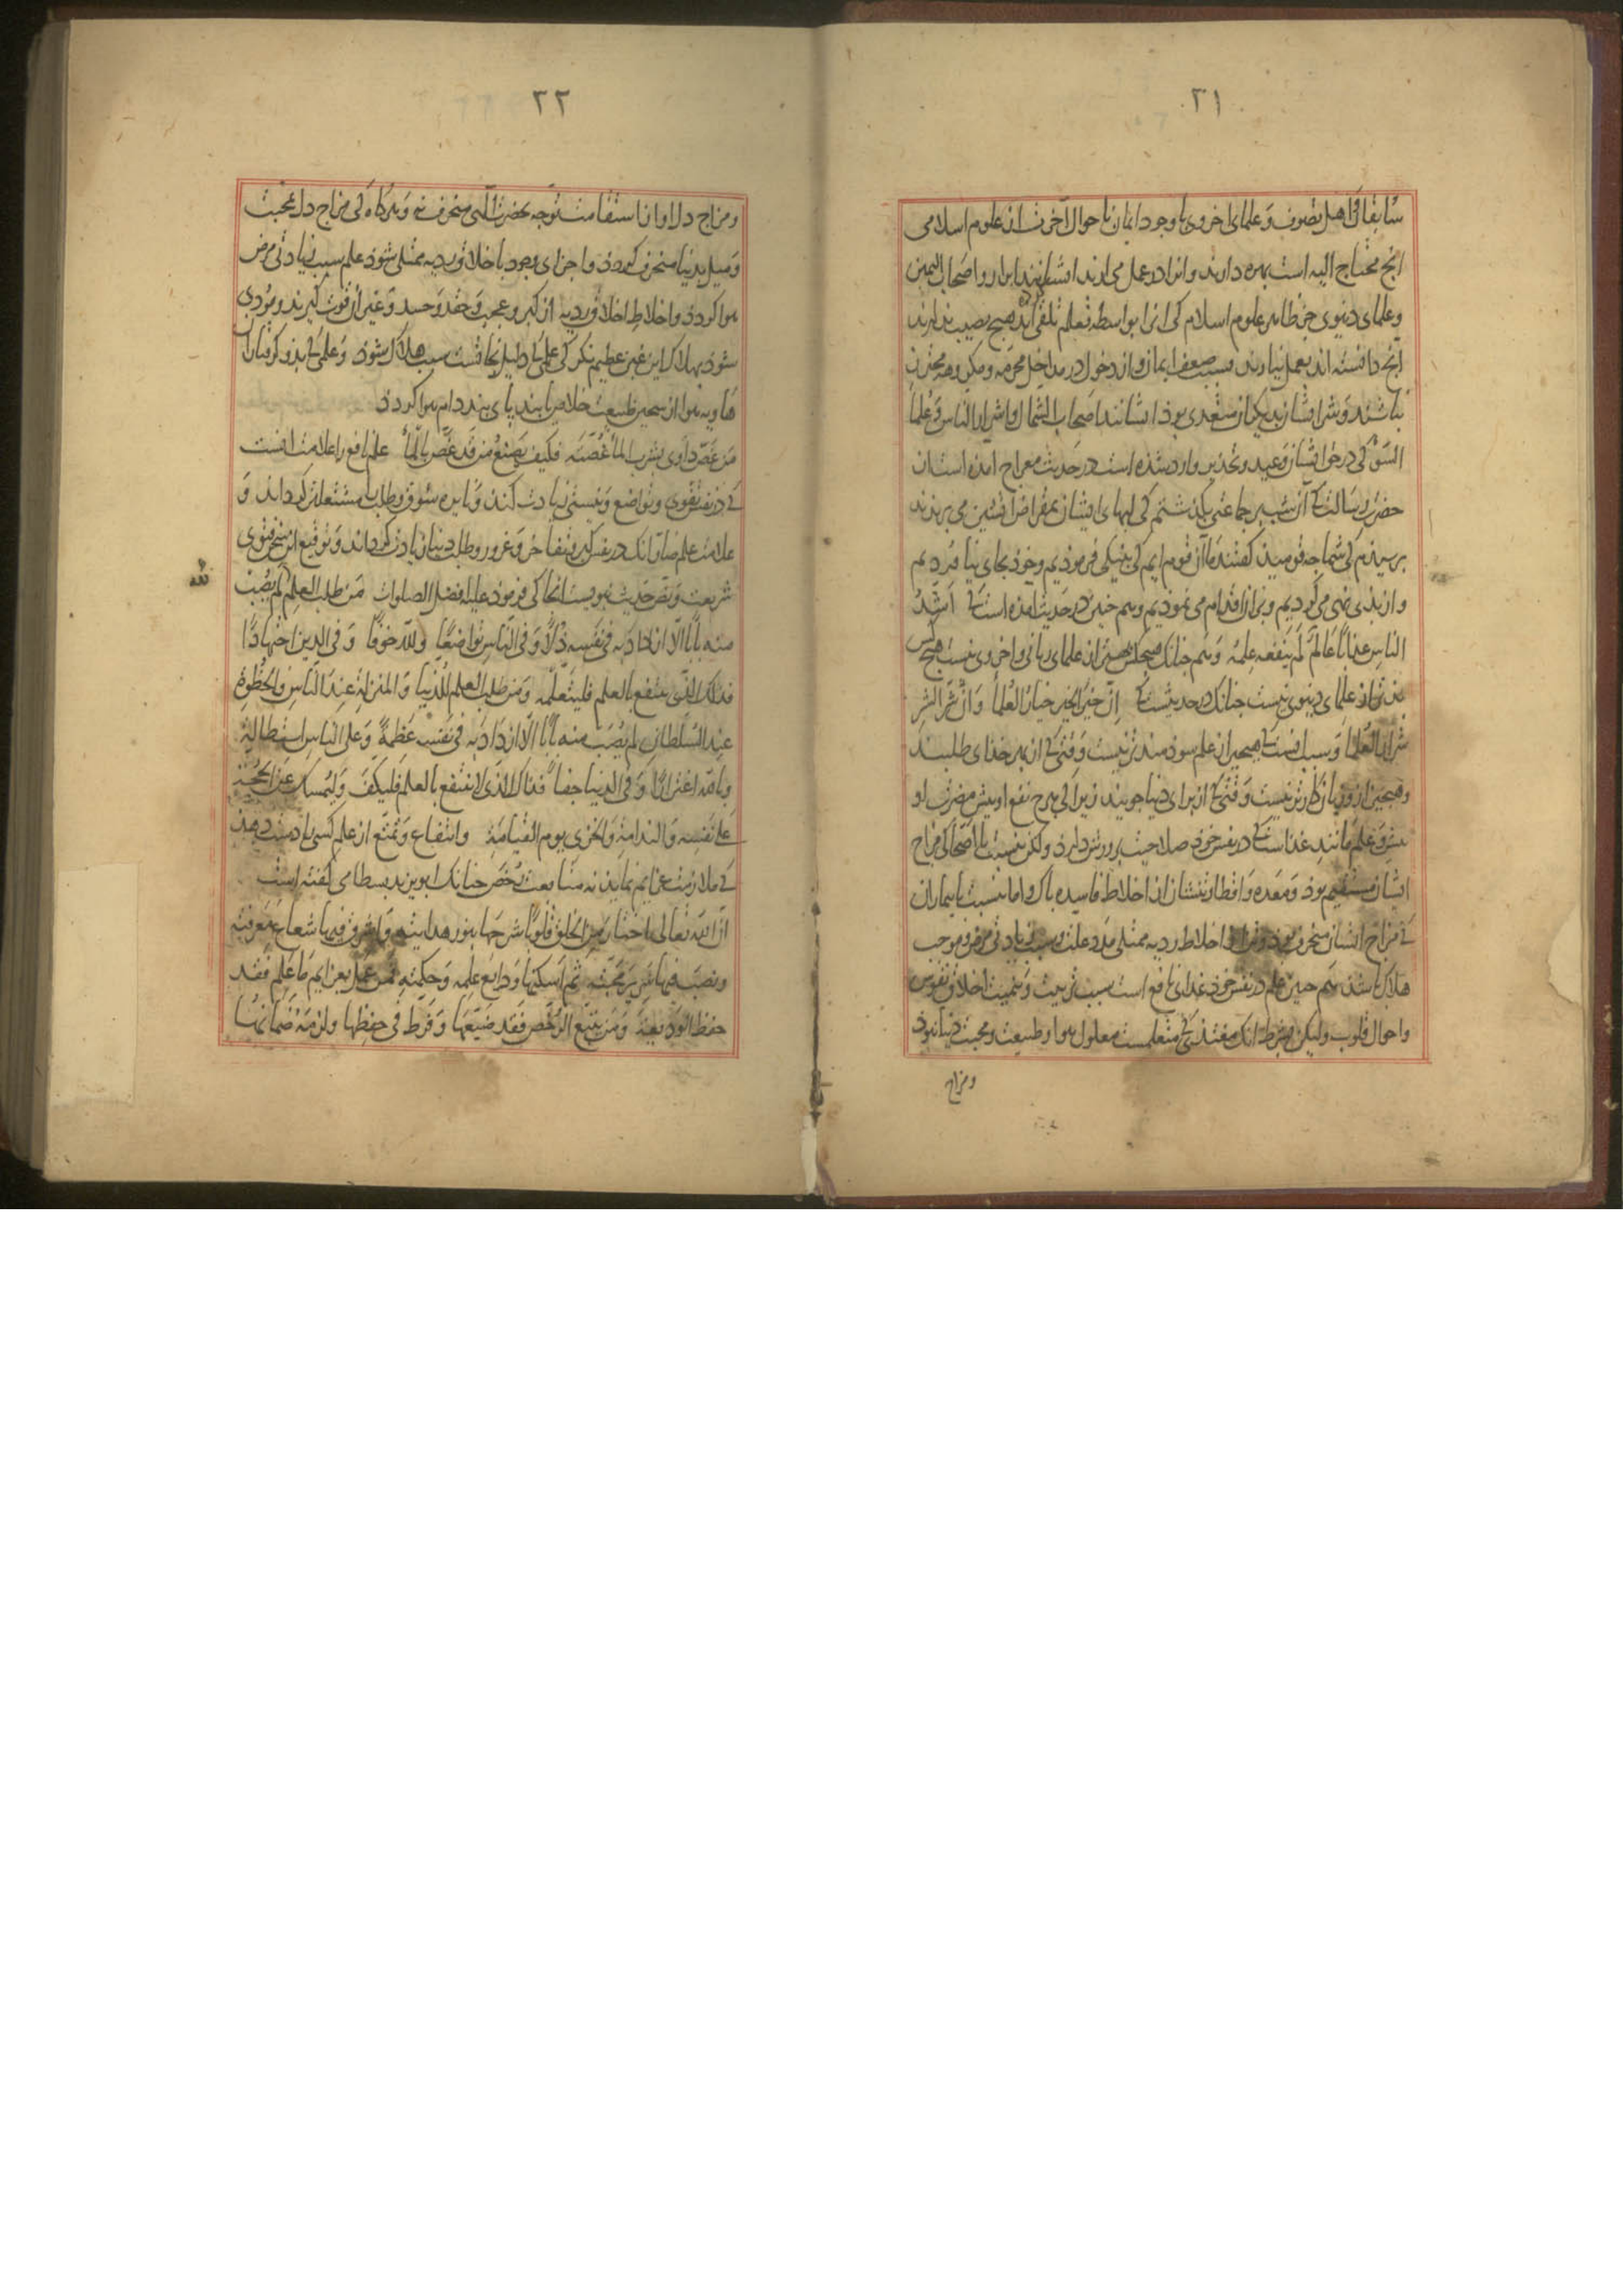 ٢١
سابقا کی اهل تصوف و علمای اخروی با وجود ایمان باحوال آخرت از علوم اسلامی
انج محتاج الیه است بهره دارند و انرا در عمل می ارند ایشانند ابرار و اصحاب الیمین
و علمای دنیوی جز ظاهر علوم اسلام کی انرا بواسطه تعلم تلقی کرده اند هیج نصیب ندارند
انج دانسته اند بعمل نیارند و بسبب ضعف ایمان و از دخول در مداخل محرمه و مکروهه محترز
نباشند و شر ایشان بدیکران متعدی بوذ ایشانند اصحاب الشمال و اشرار الناس و علما
السوء کی در حق ایشان وعید و تحذیر وارد شده است در حدیث معراج امده است ان
حضرت رسالت کی آن شب بر جماعتی بکذشتم کی لبهای ایشان بمقراض اتشین می بریدند
برسیدم کی شما جه قومید کفتند ما آن قوم ایم کی بنیکی فرموذیم و خوذ بجای نیاوردیم
و از بدی نهی می کردیم و بران اقدام می نموذیم و هم جنین در حدیث امده است کی اشد
الناس عذابا عالم لم ینفعه علمه و هم جنانک هیج کس بهتر از علمای ربانی و اخروی نیست هیج کس
بذتر از علمای دنیوی نیست جنانک در حدیثست کی ان خیر الخیر خیار العلما و ان شر الشر
شرار العلما و سبب انست کی هیجیز از علم سوذمندتر نیست وقتی کی از بهر خذای طلبند
و هیجیز از و زیان کارتر نیست وقتی کی از برای دنیا جویند زیرا کی هرج نفع او بیش مضرت او
بیش و علم مانند غذاست کی در نفس خوذ صلاحیت برورش دارذ ولکن بنسبت با اصحا کی مزاج
ایشان مستقیم بوذ و معده و اقطار تنشان از اخلاط فاسده باک و اما بنسبت با بیماران
کی مزاج ایشان منحرف بوذ و از اخلاط ردیه ممتلی مدد علت و سبب زیادتی مرض و موجب
هلاک باشذ هم جنین علم در نفس خوذ غذای نافع است سبب تربیت و تنمیت اخلاق نفوس
و احوال قلوب ولیکن بشرط انک مغتذی کی متعلمست معلول هوا و طبیعت و محبت دنیا نبوذ
و مزاج
٢٢
و مزاج دل او از استقامت توجه بحضرت الهی منحرف نه و هرکاه کی مزاج دل بمحبت
و میل بدنیا منحرف کردذ و اجزای وجود باخلاق ردیه ممتلی شوذ علم سبب زیادتی مرض
هوا کردذ و اخلاط اخلاق ردیه از کبر و عجب و حقد و حسد و غیر آن قوت کیرند و مؤدی
شوذ بهلاک این غبن عظیم نکر کی علم کی دلیل نجاتست سبب هلاک شوذ و علم کی بذو کرفتاران
هاویه هوا از سجن طبیعت خلاص یابند پای بند دام هوا کردذ
من غص داوی بشرب الما غصته فکیف یصنع من قد غص بالما علم نافع را علامت انست
کی در نفس تقوی و تواضع و نیستی زیادت کند و نایره شوق و طلب مشتعلتر کرداند و
علامت علم ضار انک در نفس کبر و تفاخر و غرور و طلب دنیا زیادت کرداند و توقیع این فتوی
شریعت و نص حدیث نبویست انجا کی فرموذ علیه افضل الصلوات من طلب العلم لله لم یصب
منه بابا الا ازداد به فی نفسه ذلا و فی الناس تواضعا ولله خوفا و فی الدین اجتهادا
فذلک الذی ینتفع بالعلم فلیتعلمه و من طلب العلم للدنیا و المنزلة عند الناس و الحظوة
عند السلطان لم یصب منه بابا الا ازداد به فی نفسه عظمة و علی الناس استطالة
و بالله اغترارا و فی الدنیا جفا فذاک الذی لا ینتفع بالعلم فلیکف و لیمسک عن الحجة
علی نفسه و الندامة و الخزی یوم القیامة و انتفاع و تمتع از علم کسی را دست دهذ
کی ملازمت عزایم نماید نه متابعت رخص جنانک ابو یزید بسطامی کفته است
ان الله تعالی اختار من الخلق قلوبا شرحها بنور هدایته و اشرق فیها شعاع معرفته
و نصب فیها سریر محبته ثم اسکنها ودایع علمه و حکمته فمن عمل بعزایم ما علم فقد
حفظ الودیعة و من تتبع الرخص فقد ضیعها و فرط فی حفظها و لزمه ضمانها
لله